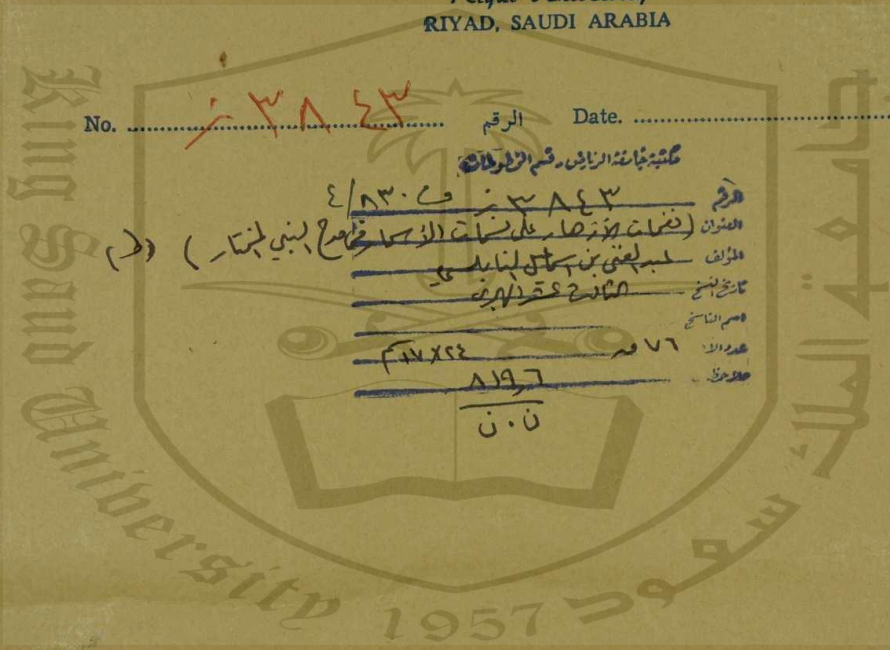 RIYAD, SAUDI ARABIA
No. ٣٨٤٣ ز الرقم Date.
مكتبة جامعة الرياض - قسم المخطوطات
الرقم ٣٨٤٣ ز ف ٨٣٠/٤
العنوان (نفحات الأزهار على نسمات الأسحار في مدح النبي المختار)
المؤلف عبد الغني بن اسماعيل النابلسي
تاريخ النسخ الثالث عشر الهجري
اسم الناسخ
عدد الأوراق ٧٦ ور ١٧×٢٤ سم
ملاحظ ٨١٩,٦
ن . ن
King Saud University 1957
جامعة الملك سعود